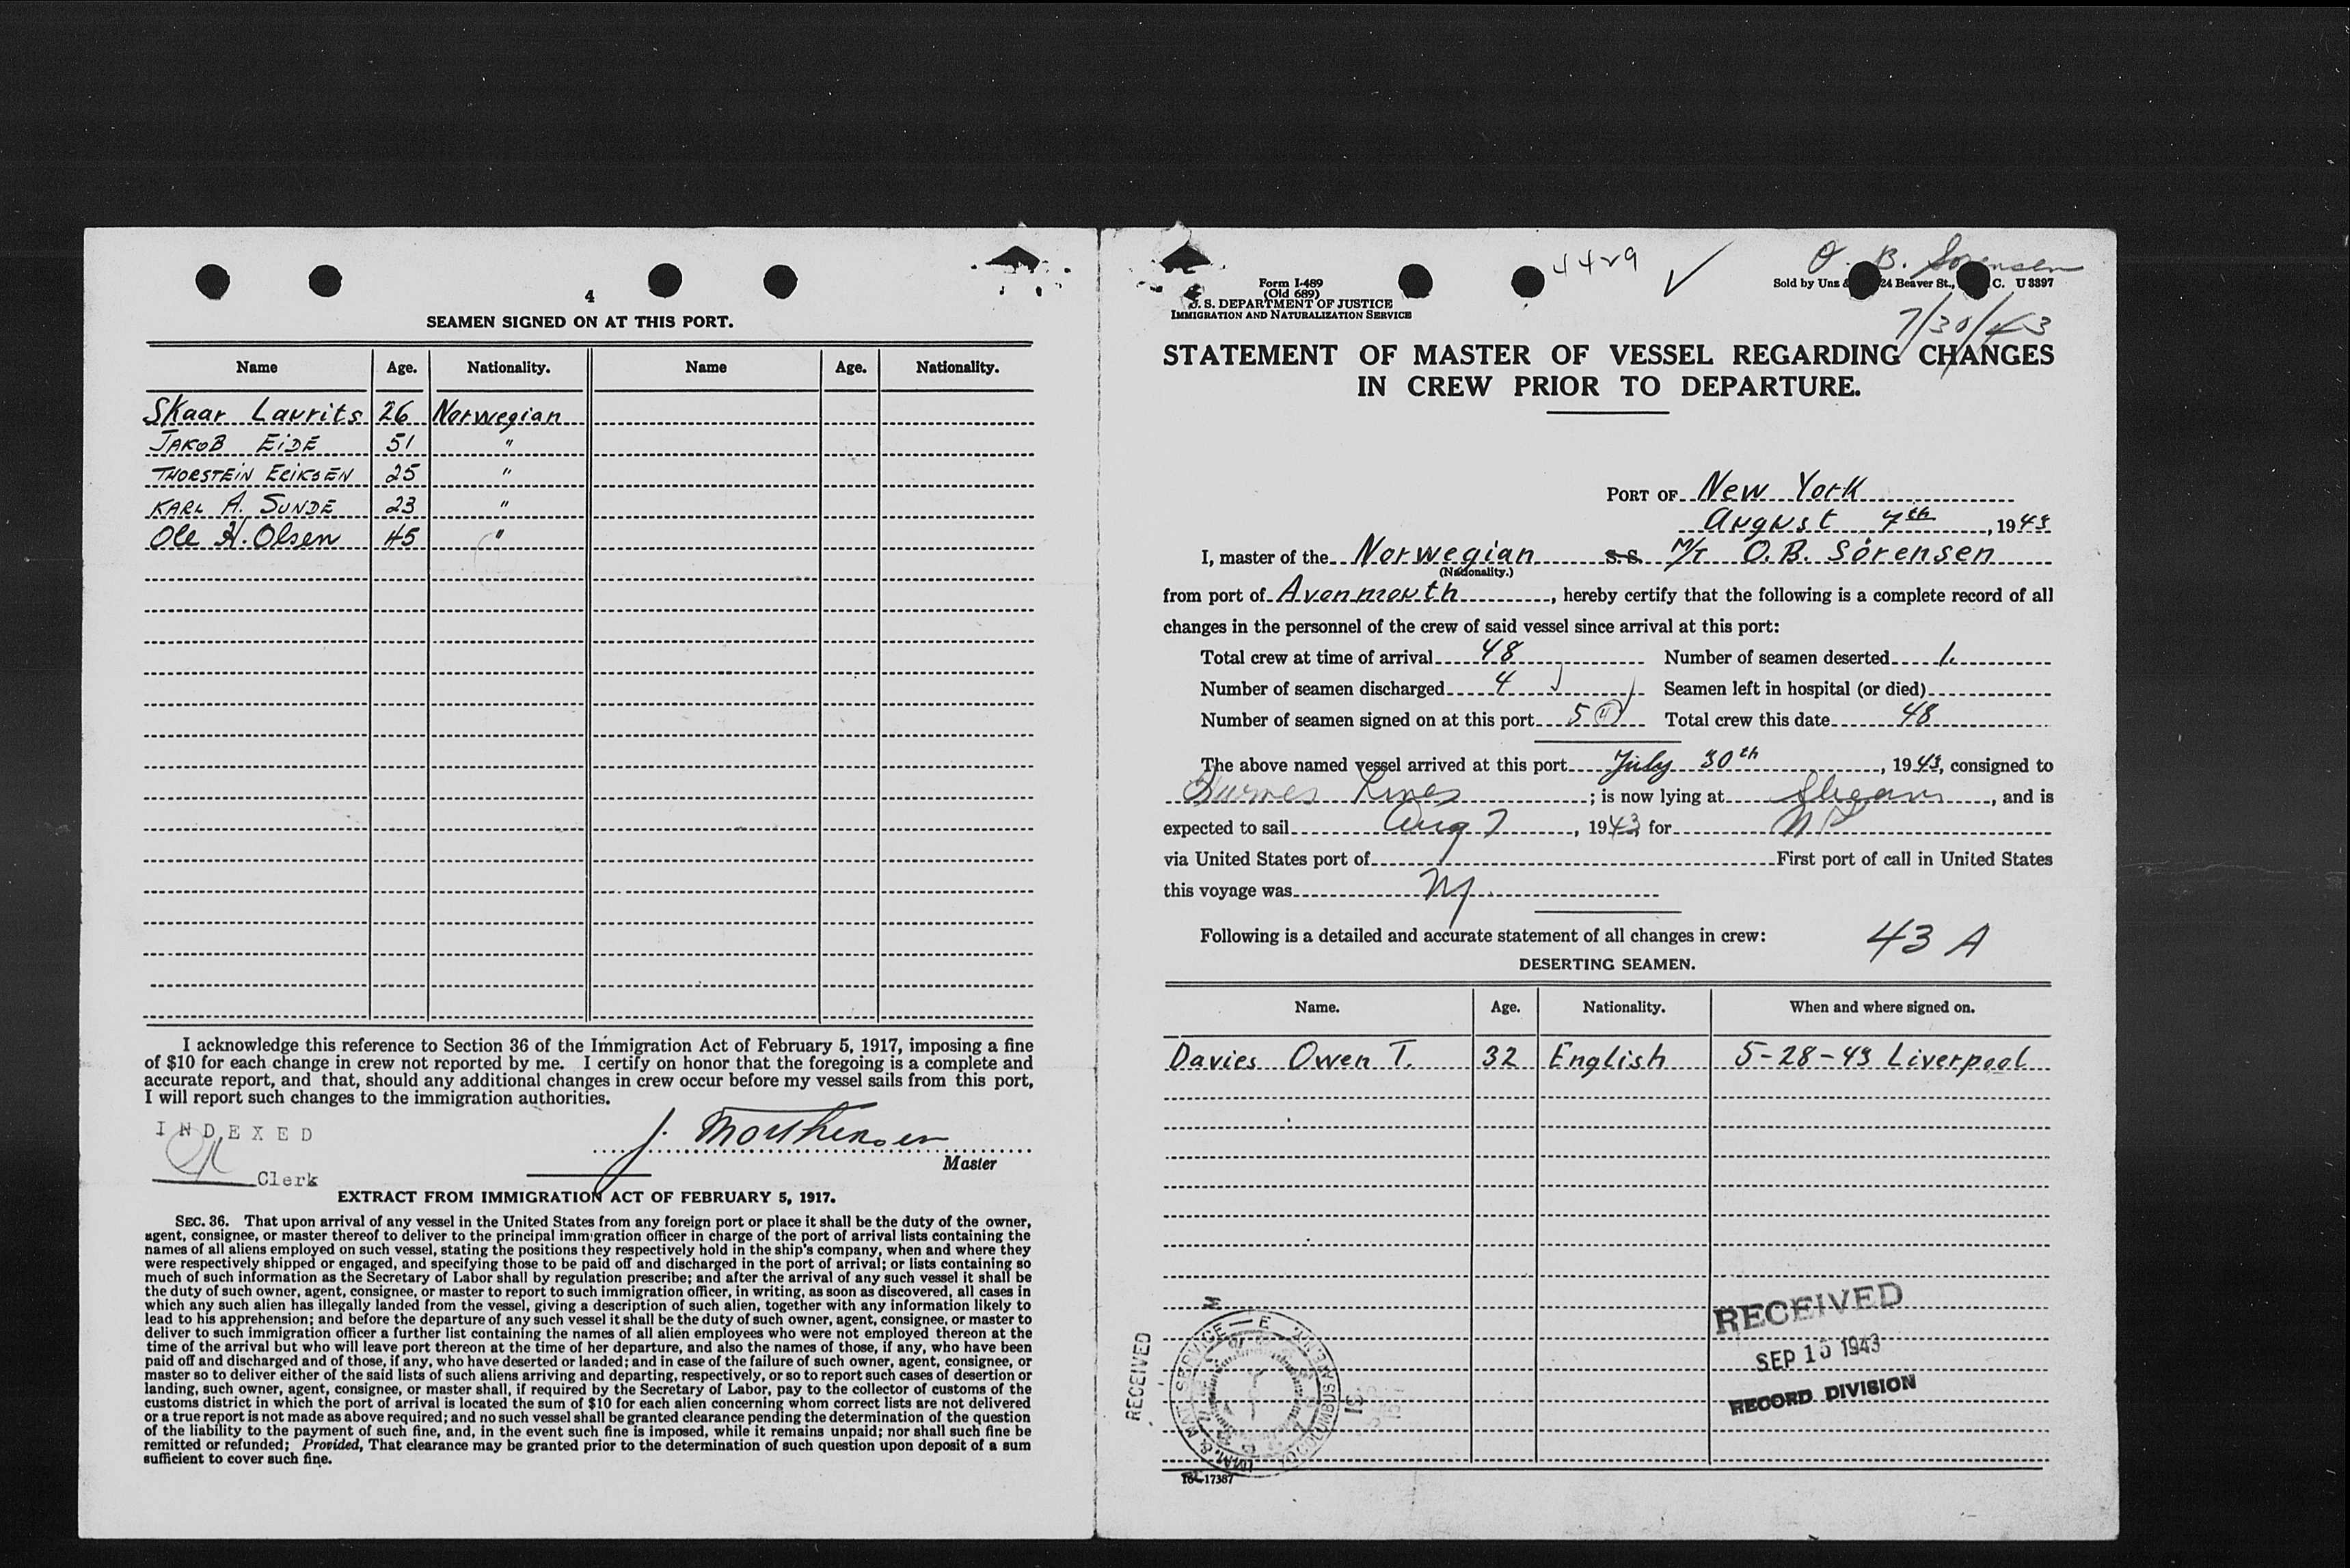 4
SEAMEN SIGNED ON AT THIS PORT.
Name Age. Nationality. Name Age. Nationality.
Skaar Laurits 26 Norwegian
JAKOB EIDE 51 "
THORSTEIN ERIKSEN 25 "
KARL A. SUNDE 23 "
Ole H. Olsen 45 "
I acknowledge this reference to Section 36 of the Immigration Act of February 5, 1917, imposing a fine
of $10 for each change in crew not reported by me. I certify on honor that the foregoing is a complete and
accurate report, and that, should any additional changes in crew occur before my vessel sails from this port,
I will report such changes to the immigration authorities.
INDEXED
J. Morthensen
Master
Clerk
EXTRACT FROM IMMIGRATION ACT OF FEBRUARY 5, 1917.
SEC. 36. That upon arrival of any vessel in the United States from any foreign port or place it shall be the duty of the owner,
agent, consignee, or master thereof to deliver to the principal immigration officer in charge of the port of arrival lists containing the
names of all aliens employed on such vessel, stating the positions they respectively hold in the ship's company, when and where they
were respectively shipped or engaged, and specifying those to be paid off and discharged in the port of arrival; or lists containing so
much of such information as the Secretary of Labor shall by regulation prescribe; and after the arrival of any such vessel it shall be
the duty of such owner, agent, consignee, or master to report to such immigration officer, in writing, as soon as discovered, all cases in
which any such alien has illegally landed from the vessel, giving a description of such alien, together with any information likely to
lead to his apprehension; and before the departure of any such vessel it shall be the duty of such owner, agent, consignee, or master to
deliver to such immigration officer a further list containing the names of all alien employees who were not employed thereon at the
time of the arrival but who will leave port thereon at the time of her departure, and also the names of those, if any, who have been
paid off and discharged and of those, if any, who have deserted or landed; and in case of the failure of such owner, agent, consignee, or
master so to deliver either of the said lists of such aliens arriving and departing, respectively, or so to report such cases of desertion or
landing, such owner, agent, consignee, or master shall, if required by the Secretary of Labor, pay to the collector of customs of the
customs district in which the port of arrival is located the sum of $10 for each alien concerning whom correct lists are not delivered
or a true report is not made as above required; and no such vessel shall be granted clearance pending the determination of the question
of the liability to the payment of such fine, and, in the event such fine is imposed, while it remains unpaid; nor shall such fine be
remitted or refunded; Provided, That clearance may be granted prior to the determination of such question upon deposit of a sum
sufficient to cover such fine.
O. B. Sorensen
4429
Form I-489
(Old 689)
U. S. DEPARTMENT OF JUSTICE
IMMIGRATION AND NATURALIZATION SERVICE
Sold by Unz & 24 Beaver St., C. U 3397
7/30/43
STATEMENT OF MASTER OF VESSEL REGARDING CHANGES
IN CREW PRIOR TO DEPARTURE.
PORT OF New York
August 7th, 1943
I, master of the Norwegian S. S. M/T O.B. Sörensen
(Nationality.)
from port of Avonmouth, hereby certify that the following is a complete record of all
changes in the personnel of the crew of said vessel since arrival at this port:
Total crew at time of arrival 48 Number of seamen deserted 1.
Number of seamen discharged 4 Seamen left in hospital (or died)
Number of seamen signed on at this port 5 Total crew this date 48
The above named vessel arrived at this port July 30th, 1943, consigned to
Lines; is now lying at Stream, and is
expected to sail Aug 7, 1943 for
via United States port of First port of call in United States
this voyage was NY
Following is a detailed and accurate statement of all changes in crew: 43 A
DESERTING SEAMEN.
Name. Age. Nationality. When and where signed on.
Davies Owen T. 32 English 5-28-43 Liverpool
RECEIVED
SEP 10 1943
RECORD DIVISION
RECEIVED
16-17387